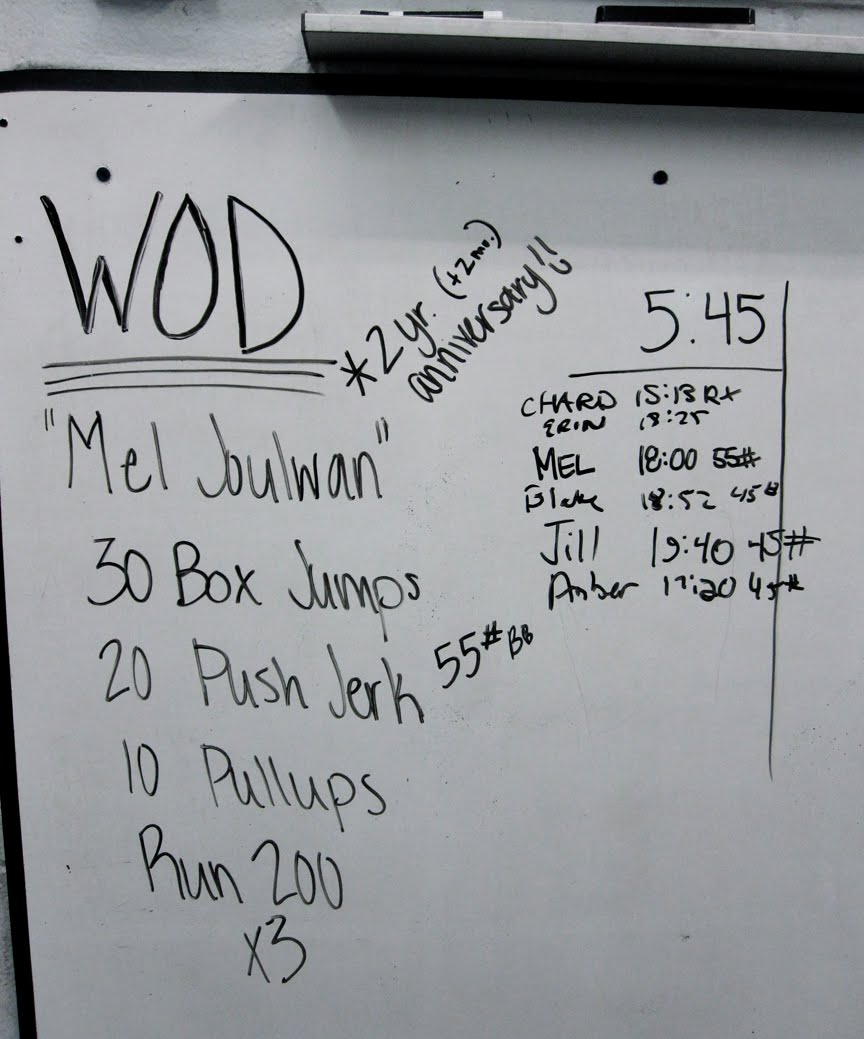 WOD
*2 yr. (+2 mo.)
anniversary!!
"Mel Joulwan"
30 Box Jumps
20 Push Jerk 55# BB
10 Pullups
Run 200
x3
5:45
CHARD 15:13 RX
ERIN 18:25
MEL 18:00 55#
Blake 18:52 45#
Jill 19:40 45#
Amber 17:20 45#